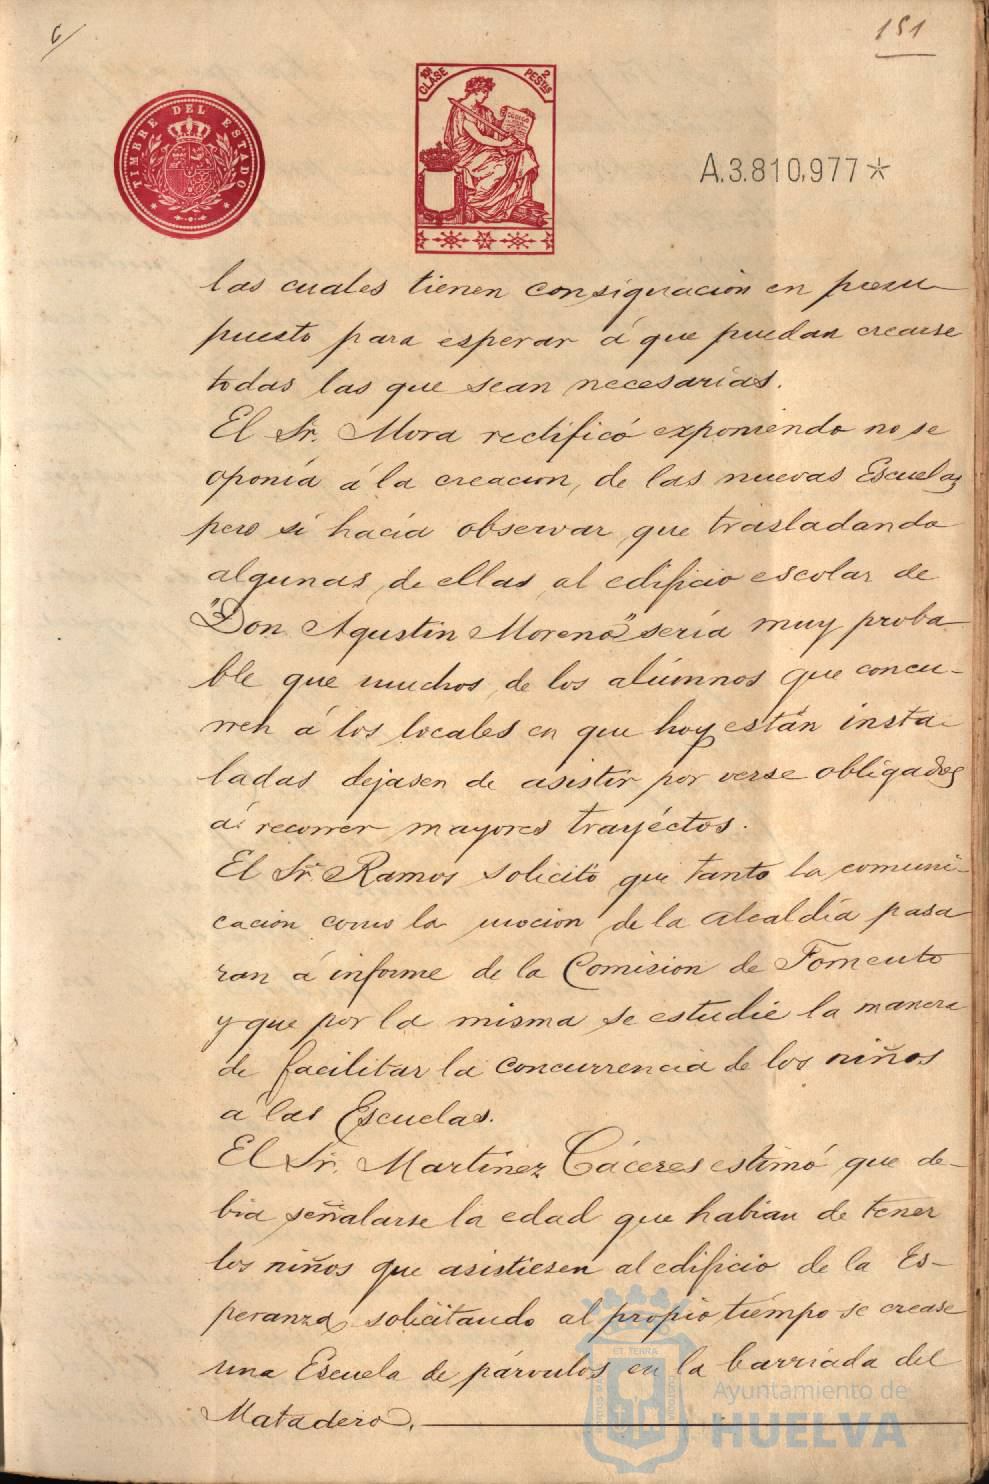 6/
151
TIMBRE DEL ESTADO
10ª CLASE
2 PESTAS
A.3.810,977*
las cuales tienen consignación en presu
puesto para esperar á que puedan crearse
todas las que sean necesarias.
El Sr. Mora rectificó exponiendo no se
oponía á la creacion, de las nuevas Escuelas
pero sí hacía observar que trasladando
algunas de ellas al edificio escolar de
"Don Agustín Moreno" sería muy proba
ble que muchos de los alúmnos que concu-
rren á los locales en que hoy están insta-
ladas dejasen de asistir por verse obligados
á recorrer mayores trayéctos.
El Sr. Ramos solicitó que tanto la comuni-
cación como la mocion de la Alcaldía pasa
ran á informe de la Comision de Fomento
y que por la misma se estudie la manera
de facilitar la concurrencia de los niños
á las Escuelas.
El Sr. Martínez Cáceres estimó que de-
bia señalarse la edad que habian de tener
los niños que asistiesen al edificio de la Es-
peranza, solicitando al propio tiempo se crease
una Escuela de párvulos en la barriada del
Matadero.
ET TERRA
Ayuntamiento de
HUELVA